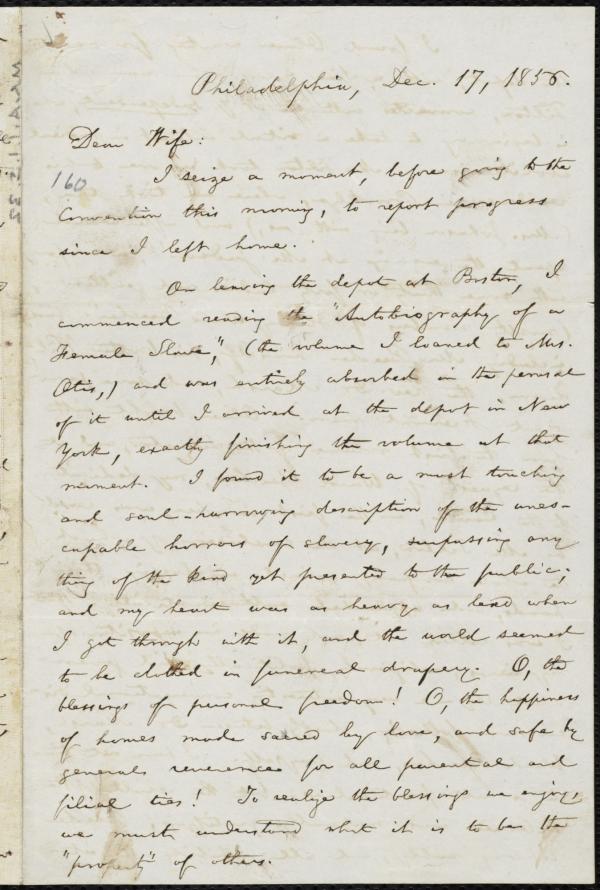 Philadelphia, Dec. 17, 1856.
Dear Wife:
160
I seize a moment, before going to the
Convention this morning, to report progress
since I left home.
On leaving the depot at Boston, I
commenced reading the "Autobiography of a
Female Slave," (the volume I loaned to Mrs.
Otis,) and was entirely absorbed in the perusal
of it until I arrived at the depot in New
York, exactly finishing the volume at that
moment. I found it to be a most touching
and soul-harrowing description of the ines-
capable horrors of slavery, surpassing any
thing of the kind yet presented to the public;
and my heart was as heavy as lead when
I got through with it, and the world seemed
to be clothed in funereal drapery. O, the
blessings of personal freedom! O, the happiness
of homes made sacred by love, and safe by
general reverence for all parental and
filial ties! To realize the blessings we enjoy,
we must understand what it is to be the
"property" of others.